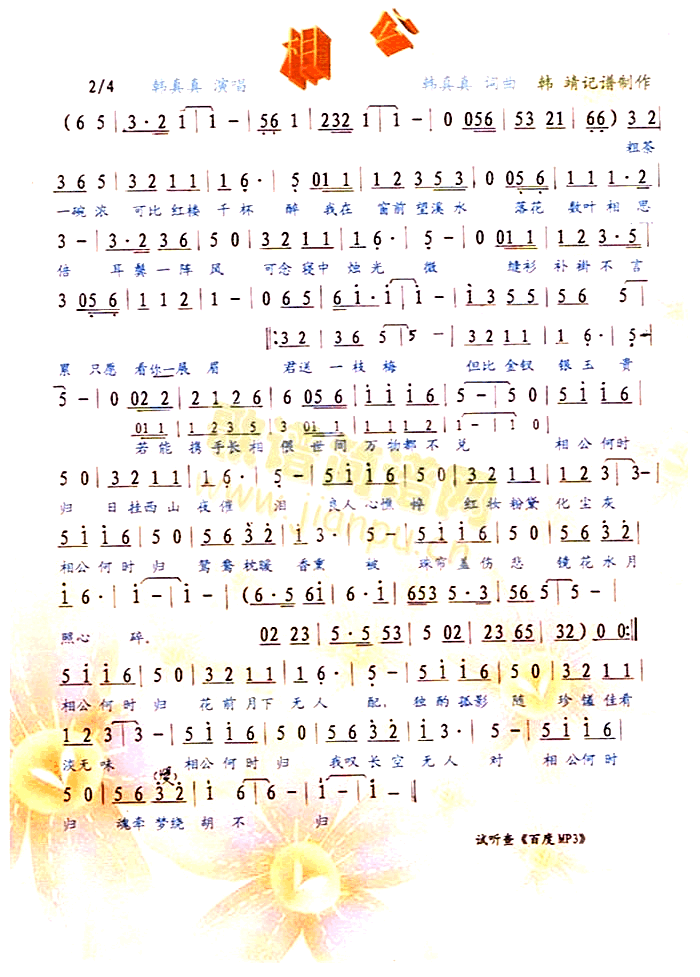 相公
2/4 韩真真 演唱 韩真真 词曲 韩 靖记谱制作
(6 5 | 3·2 1 | 1 - | 56 1 | 232 1 | 1 - | 0 056 | 53 21 | 66) 3 2
粗茶
3 6 5 | 3 2 1 1 | 1 6· | 5 01 1 | 1 2 3 5 3 | 0 05 6 | 1 1 1·2 |
一碗浓 可比红楼 千杯 醉 我在 窗前望溪水 落花 数叶相思
3 - | 3·2 3 6 | 5 0 | 3 2 1 1 | 1 6· | 5 - | 0 01 1 | 1 2 3·5 |
倍 耳鬓一阵风 可念寝中 烛光 微 缝衫 补褂不言
3 05 6 | 1 1 2 | 1 - | 1 - | 0 6 5 | 6 1· | 1 - | 1 3 5 5 | 5 6 5
||: 3 2 | 3 6 5 | 5 | 3 2 1 1 | 1 6· | 5 -
累 只愿 看你一展眉 君送 一枝梅 但比金钗 银玉贵
5 - | 0 02 2 | 2 1 2 6 | 6 05 6 | 1 1 1 6 | 5 - | 5 0 | 5 1 1 6 |
01 1 | 1 2 3 5 | 3 01 1 | 1 1 1 2 | 1 - | 1 0 |
若能 携手长相偎 世间 万物都不兑 相公何时
5 0 | 3 2 1 1 | 1 6· | 5 - | 5 1 1 6 | 5 0 | 3 2 1 1 | 1 2 3 | 3 -
归 日挂西山 夜催 泪 良人心憔悴 红妆粉黛 化尘灰
5 1 1 6 | 5 0 | 5 6 3 2 | 1 3· | 5 - | 5 1 1 6 | 5 0 | 5 6 3 2 |
相公何时归 鸳鸯枕暖 香熏 被 珠帘盖伤悲 镜花水月
1 6· | 1 - | 1 - | (6·5 61 | 6 6· | 653 5·3 | 56 5 | 5 - |
照心 碎.
02 23 | 5·5 53 | 5 02 | 23 65 | 32) 0 0 :||
5 1 1 6 | 5 0 | 3 2 1 1 | 1 6· | 5 - | 5 1 1 6 | 5 0 | 3 2 1 1 |
相公何时归 花前月下 无人 配, 独酌孤影 随 珍馐佳肴
1 2 3 | 3 - | 5 1 1 6 | 5 0 | 5 6 3 2 | 1 3· | 5 - | 5 1 1 6 |
淡无味 相公何时归 我叹长空 无人 对 相公何时
(慢)
5 0 | 5 6 3 2 | 1 6 | 6 - | 1 - | 1 - ||
归 魂牵梦绕 胡不 归
试听查《百度MP3》
www.jianpu.cn